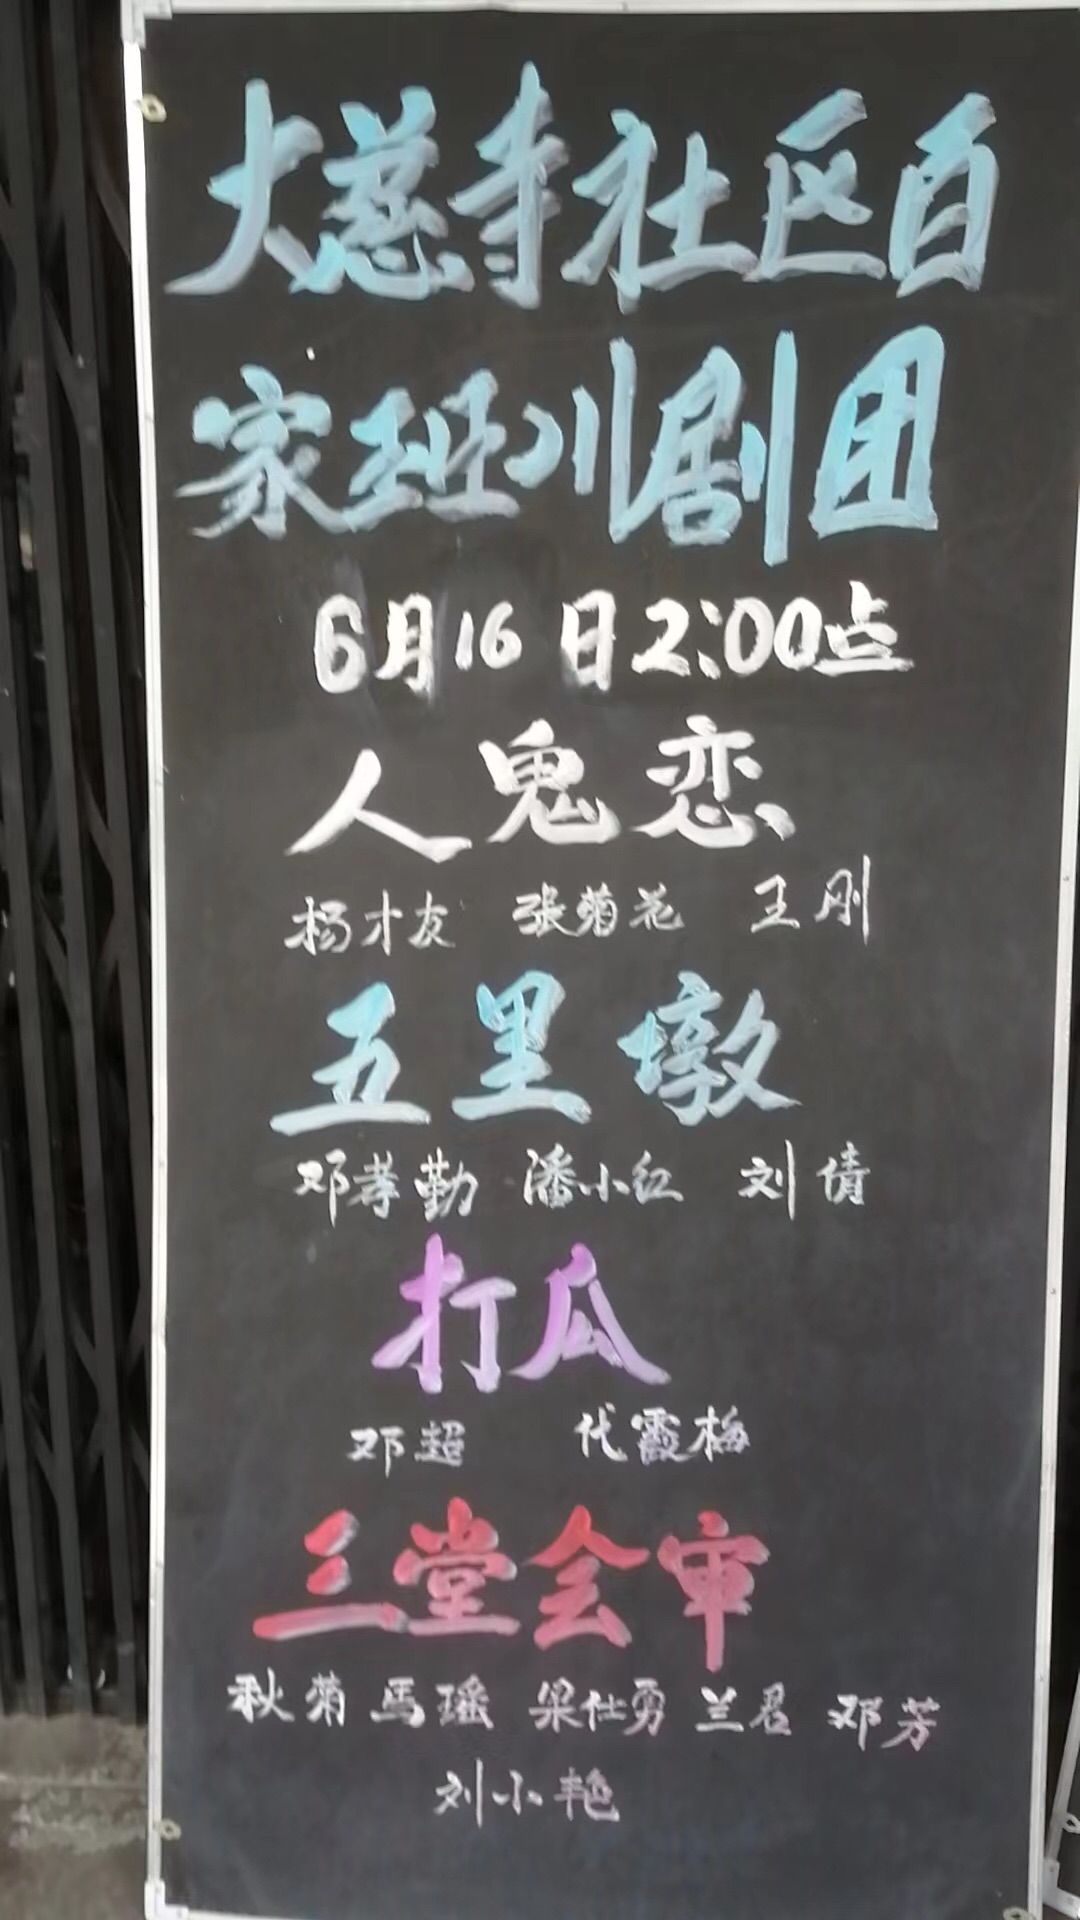 大慈寺社区百
家班川剧团
6月16日2:00点
人鬼恋
杨才友 张菊花 王刚
五里墩
邓孝勤 潘小红 刘倩
打瓜
邓超 代霞梅
三堂会审
秋菊 馬瑶 梁仕勇 兰君 邓芳
刘小艳